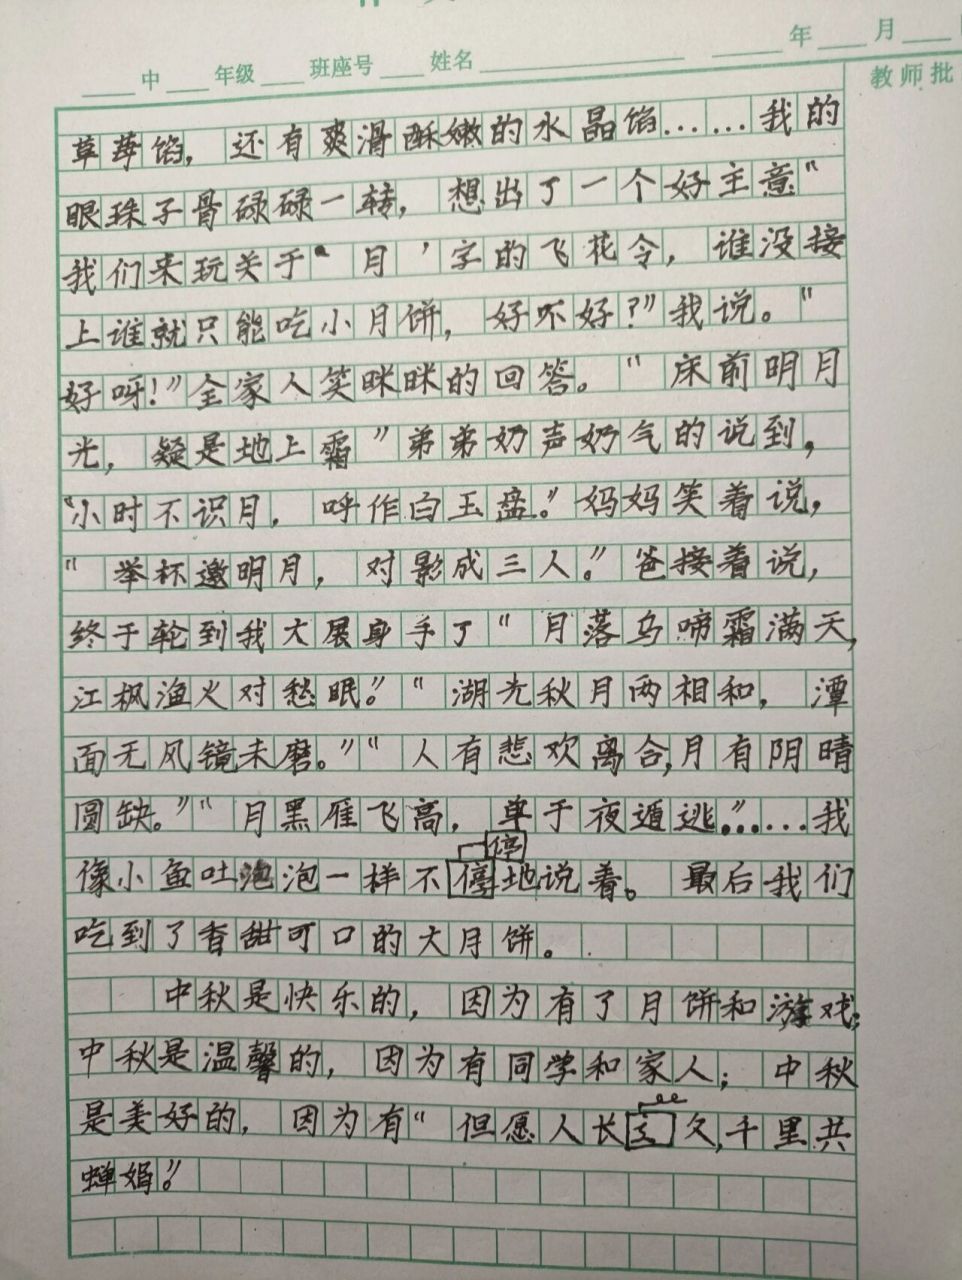 中 年级 班座号 姓名 年 月
教师批
草莓馅，还有爽滑酥嫩的水晶馅……我的
眼珠子骨碌碌一转，想出了一个好主意“
我们来玩关于‘月’字的飞花令，谁没接
上谁就只能吃小月饼，好不好？”我说。“
好呀！”全家人笑眯眯的回答。“床前明月
光，疑是地上霜”弟弟奶声奶气的说到，
“小时不识月，呼作白玉盘。”妈妈笑着说，
“举杯邀明月，对影成三人。”爸接着说，
终于轮到我大展身手了“月落乌啼霜满天，
江枫渔火对愁眠。”“湖光秋月两相和，潭
面无风镜未磨。”“人有悲欢离合，月有阴晴
圆缺。”“月黑雁飞高，单于夜遁逃。”……我
停
像小鱼吐泡泡一样不停地说着。最后我们
吃到了香甜可口的大月饼。
中秋是快乐的，因为有了月饼和游戏；
中秋是温馨的，因为有同学和家人；中秋
是美好的，因为有“但愿人长久，千里共
婵娟。”